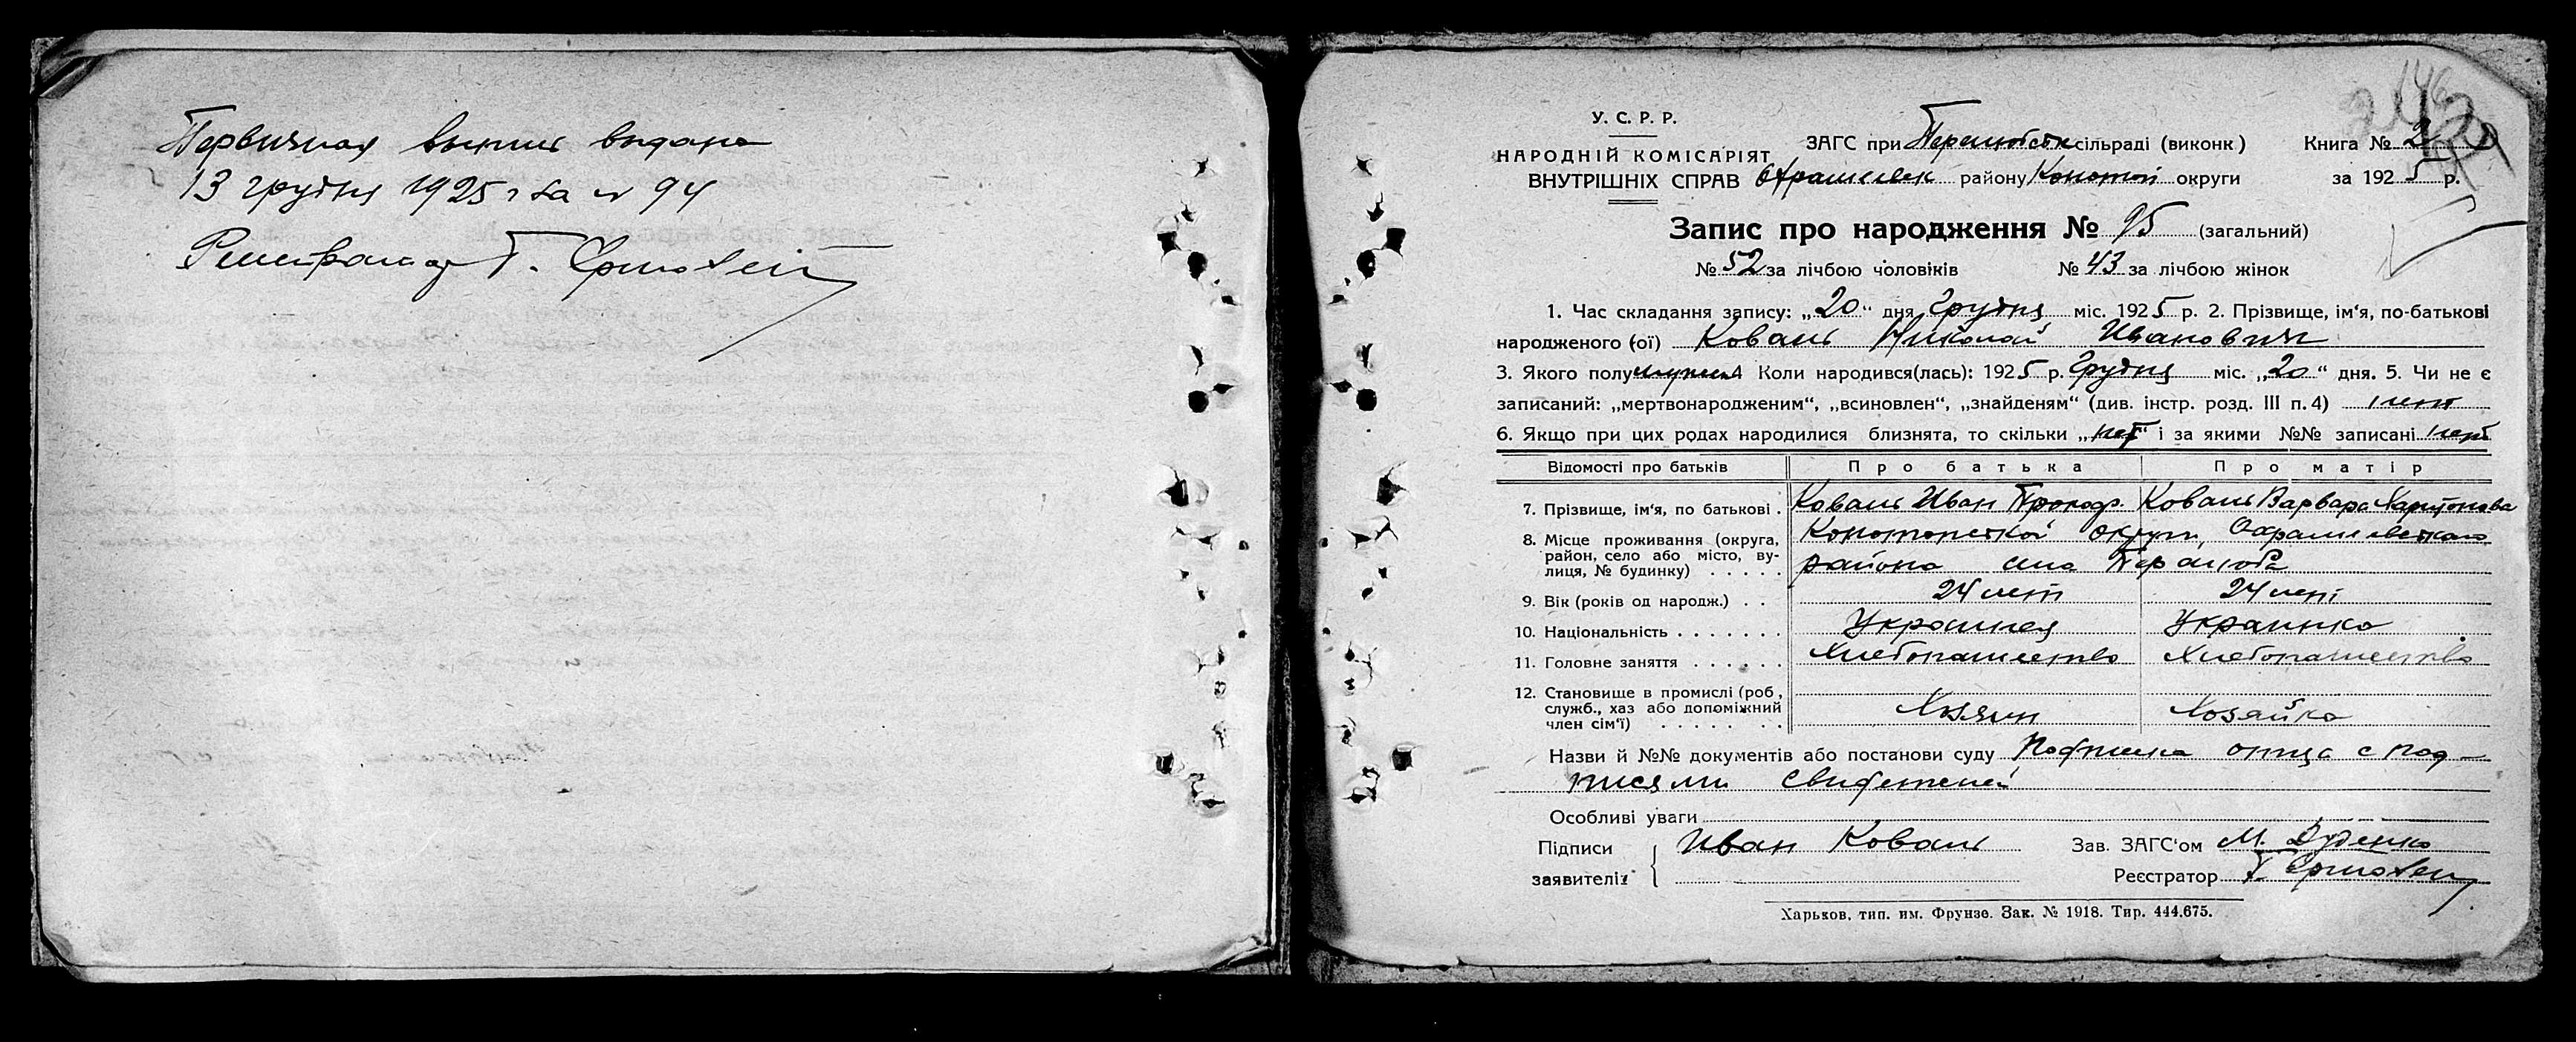 Первичная выпись выдана
13 грудня 1925 г за № 94
Регистратор Т.
У. С. Р. Р.
НАРОДНІЙ КОМІСАРІЯТ
ВНУТРІШНІХ СПРАВ
ЗАГС при сільраді (виконк)
району Конотоп округи
Книга № 2
за 1925 р.
Запис про народження № 95 (загальний)
№ 52 за лічбою чоловіків № 43 за лічбою жінок
1. Час складання запису: „20“ дня Грудня міс. 1925 р. 2. Прізвище, ім‘я, по-батькові
народженого (ої) Коваль Николай Иванович
3. Якого полу мужск 4 Коли народився(лась): 1925 р. Грудня міс. „20“ дня. 5. Чи не є
записаний: „мертвонародженим“, „всиновлен“, „знайденям“ (див. інстр. розд. III п. 4) нет
6. Якщо при цих родах народилися близнята, то скільки „нет“ і за якими №№ записані нет
Відомості про батьків Про батька Про матір
7. Прізвище, ім‘я, по батькові . Коваль Иван Прокоф. Коваль Варвара Харитонова
8. Місце проживання (округа, район, село або місто, вулиця, № будинку) . . . . . Конотопской округи, Охрамиевского
района села
9. Вік (років од народж.) . . 24 лет 24 лет
10. Національність . . . . . . . Украинец Украинка
11. Головне заняття . . . . . . Хлебопашество Хлебопашество
12. Становище в промислі (роб, служб., хаз або допоміжний член сім‘ї) . . . . . . . Хозяин Хозяйка
Назви й №№ документів або постанови суду Подписка отца с под-
писями свидетелей
Особливі уваги
Підписи заявителів Иван Коваль
Зав. ЗАГС‘ом М. Дуденко
Реєстратор Т.
Харьков, тип. им. Фрунзе. Зак. № 1918. Тир. 444.675.